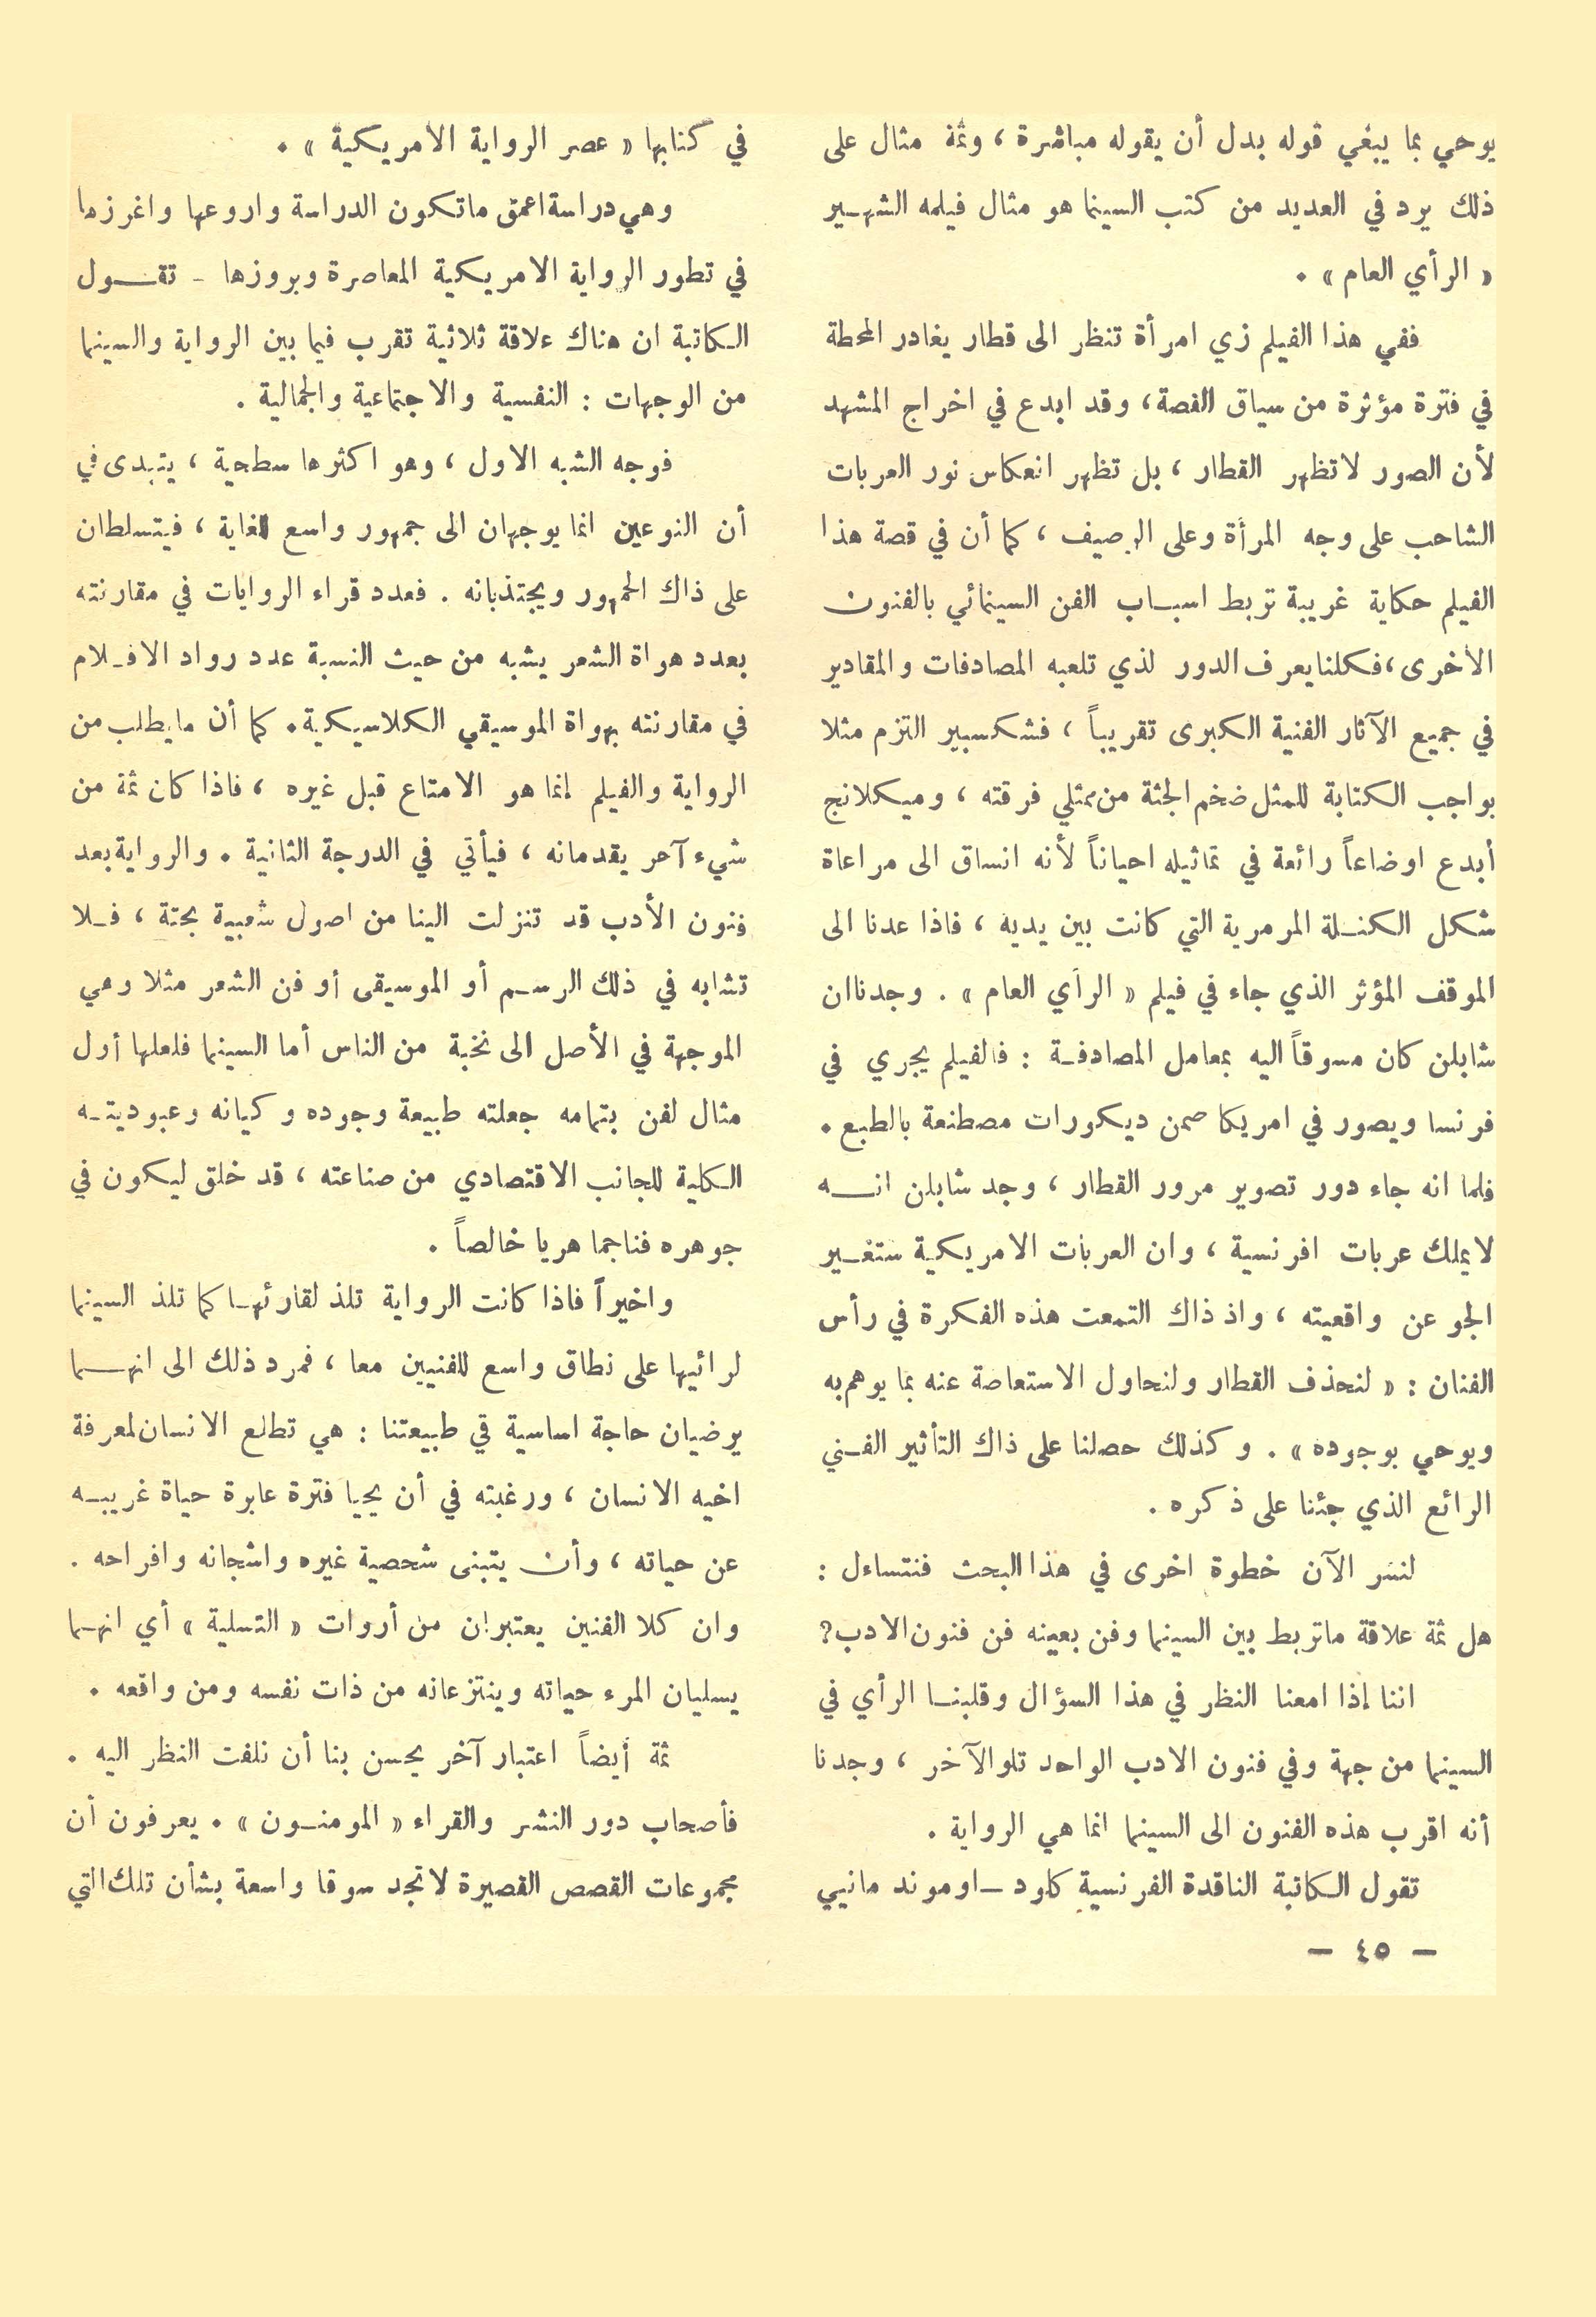 يوحي بما يبغي قوله بدل أن يقوله مباشرة ، وثمة مثال على
ذلك يرد في العديد من كتب السينما هو مثال فيلمه الشهـير
« الرأي العام » .
ففي هذا الفيلم نرى امرأة تنظر الى قطار يغادر المحطة
في فترة مؤثرة من سياق القصة، وقد ابدع في اخراج المشهد
لأن الصور لاتظهر القطار ، بل تظهر انعكاس نور العربات
الشاحب على وجه المرأة وعلى الرصيف ، كما أن في قصة هذا
الفيلم حكاية غريبة تربط اسبـاب الفن السينمائي بالفنون
الأخرى، فكلنا يعرف الدور لذي تلعبه المصادفات والمقادير
في جميع الآثار الفنية الكبرى تقريباً ، فشكسبير التزم مثلا
بواجب الكتابة للممثل ضخم الجثة من ممثلي فرقته ، وميكلانج
أبدع اوضاعاً رائعة في تماثيله احياناً لأنه انساق الى مراعاة
شكل الكتـلة المرمرية التي كانت بين يديه ، فاذا عدنا الى
الموقف المؤثر الذي جاء في فيلم « الرأي العام » . وجدنا ان
شابلن كان مسوقاً اليه بمعامل المصادفـة : فالفيلم يجري في
فرنسا ويصور في امريكا ضمن ديكورات مصطنعة بالطبع .
فلما انه جاء دور تصوير مرور القطار ، وجد شابلن انـــه
لايملك عربات افرنسية ، وان العربات الامريكية ستغـير
الجو عن واقعيته ، واذ ذاك التمعت هذه الفكرة في رأس
الفنان : « لنحذف القطار ولنحاول الاستعاضة عنه بما يوهم به
ويوحي بوجوده » . وكذلك حصلنا على ذاك التأثير الفـني
الرائع الذي جئنا على ذكره .
لنسر الآن خطوة اخرى في هذا البحث فنتساءل :
هل ثمة علاقة ماتربط بين السينما وفن بعينه فن فنون الادب؟
اننا إذا امعنا النظر في هذا السؤال وقلبنـا الرأي في
السينما من جهة وفي فنون الادب الواحد تلو الآخر ، وجدنا
أنه اقرب هذه الفنون الى السينما انما هي الرواية .
تقول الكاتبة الناقدة الفرنسية كلود ـ اوموند مانيي
في كتابها « عصر الرواية الامريكية » .
وهي دراسة اعمق ماتكون الدراسة واروعها واغرزها
في تطور الرواية الامريكية المعاصرة وبروزها - تقــول
الكاتبة ان هناك علاقة ثلاثية تقرب فيما بين الرواية والسينما
من الوجهات : النفسية والاجتماعية والجمالية .
فوجه الشبه الاول ، وهو اكثرها سطحية ، يتبدى في
أن النوعين انما يوجهان الى جمهور واسع للغاية ، فيتسلطان
على ذاك الجمهور ويجتذبانه . فعدد قراء الروايات في مقارنته
بعدد هواة الشعر يشبه من حيث النسبة عدد رواد الافـلام
في مقارنته بهواة الموسيقي الكلاسيكية . كما أن مايطلب من
الرواية والفيلم إنما هو الامتاع قبل غيره ، فاذا كان ثمة من
شيء آخر يقدمانه ، فيأتي في الدرجة الثانية . والرواية بعد
فنون الأدب قد تنزلت الينا من اصول شعبية بحتة ، فـلا
تشابه في ذلك الرسـم أو الموسيقى أو فن الشعر مثلا وهي
الموجهة في الأصل الى نخبة من الناس أما السينما فلعلها أول
مثال لفن بتمامه جعلته طبيعة وجوده وكيانه وعبوديتـه
الكلية للجانب الاقتصادي من صناعته ، قد خلق ليكون في
جوهره فنا جماهريا خالصاً .
واخيراً فاذا كانت الرواية تلذ لقارئهـا كما تلذ السينما
لرائيها على نطاق واسع للفنيين معا ، فمرد ذلك الى انهـــما
يرضيان حاجة اساسية في طبيعتنا : هي تطلع الانسان لمعرفة
اخيه الانسان ، ورغبته في أن يحيا فترة عابرة حياة غريبـه
عن حياته ، وأن يتبنى شخصية غيره واشجانه وافراحه .
وان كلا الفنين يعتبران من أروات « التسلية » أي انهـما
يسليان المرء حياته وينتزعانه من ذات نفسه ومن واقعه .
ثمة أيضاً اعتبار آخر يحسن بنا أن نلفت النظر اليه .
فأصحاب دور النشر والقراء « المومنـون » . يعرفون أن
مجموعات القصص القصيرة لاتجد سوقا واسعة بشأن تلك التي
– ٤٥ –